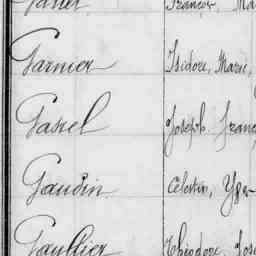 Garnier Isidore, Marie,
Gasrel Joseph, Franç
Gaudin Célestin, Yper
Gaultier Théodore, Jos